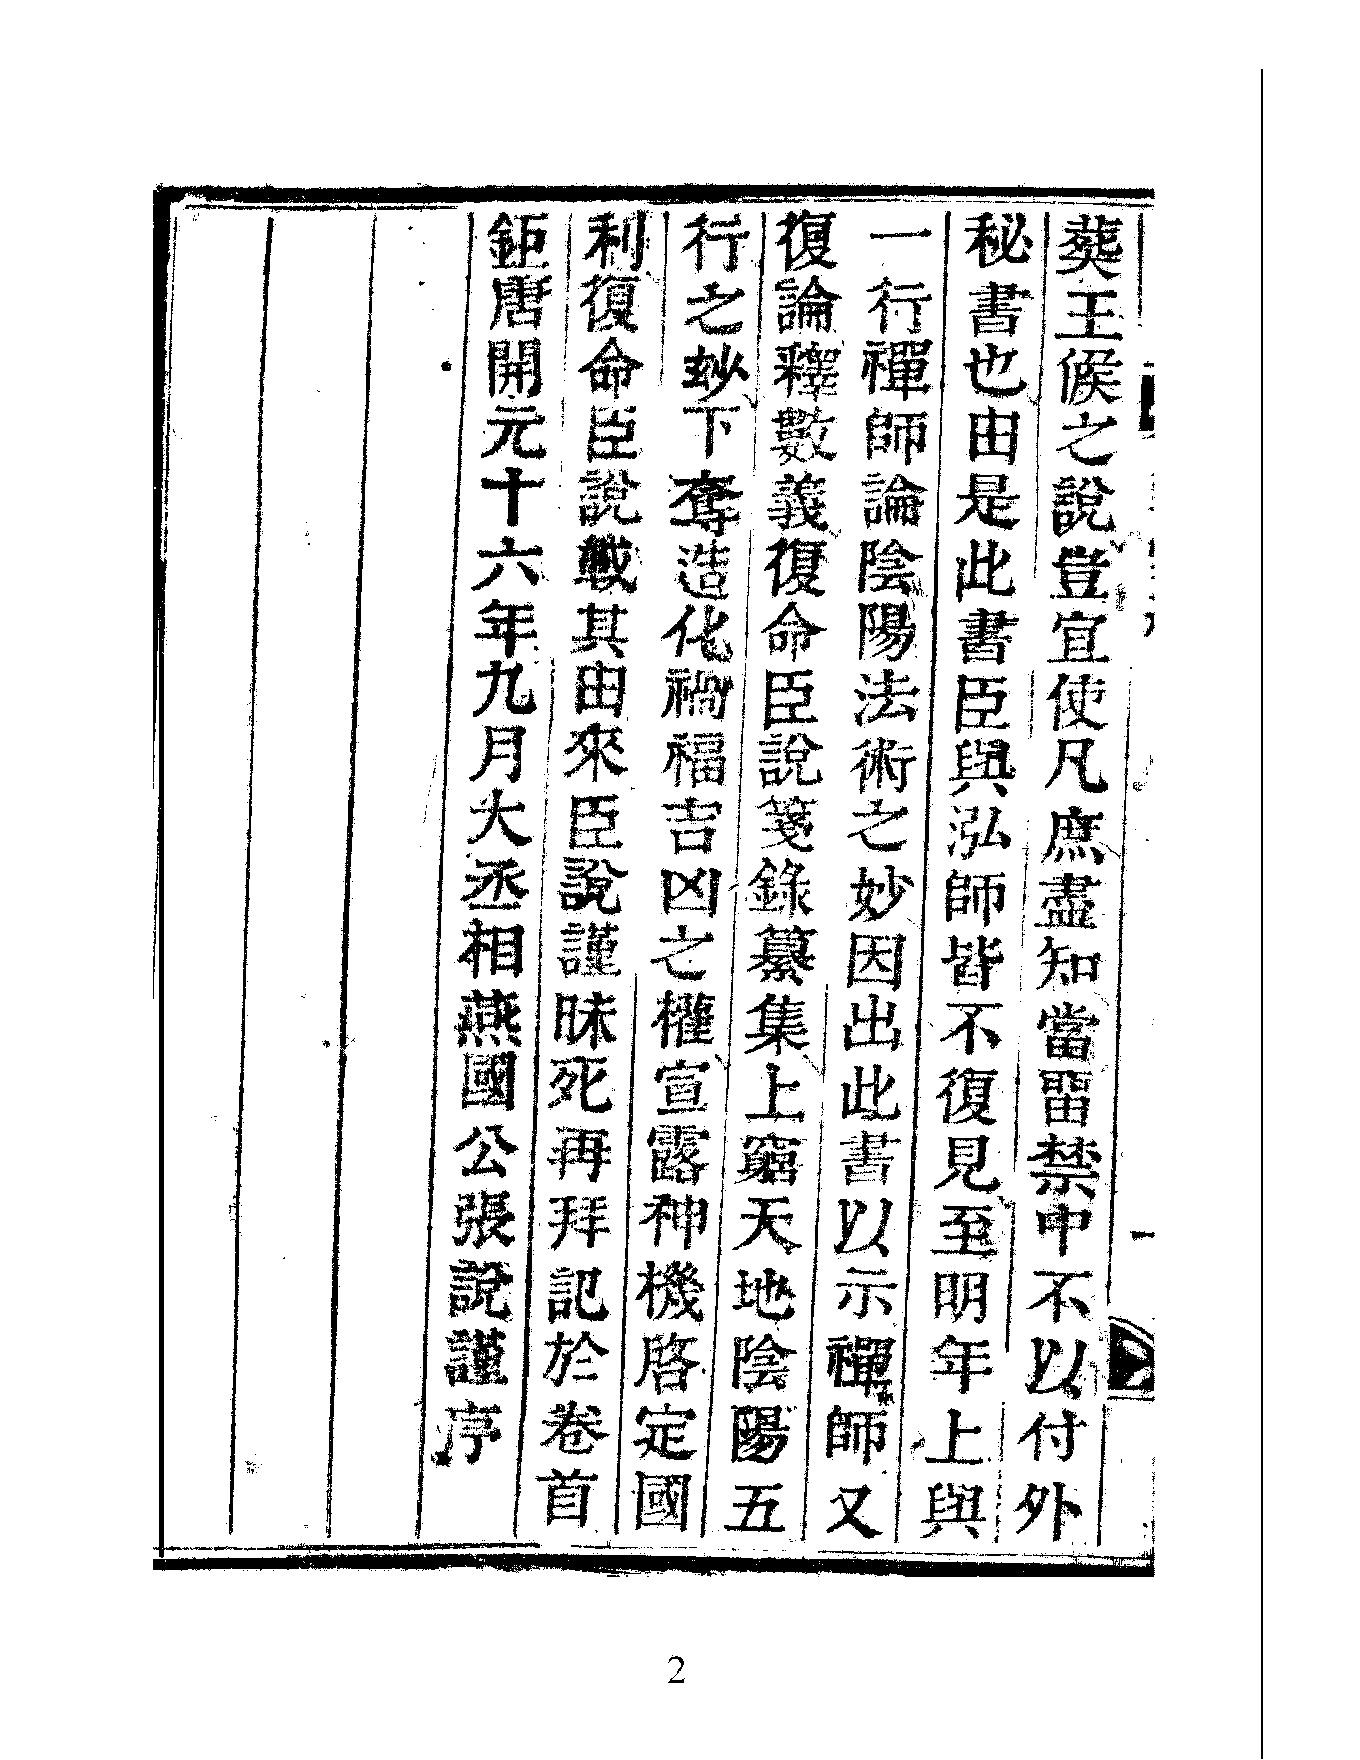 葬王候之說豈宜使凡庶盡知當畱禁中不以付外
秘書也由是此書臣與泓師皆不復見至明年上與
一行禪師論陰陽法術之妙因出此書以示禪師又
復論釋數義復命臣說箋錄纂集上窮天地陰陽五
行之玅下奪造化禍福吉凶之權宣露神機啓定國
利復命臣說載其由來臣說謹昧死再拜記於卷首
鉅唐開元十六年九月大丞相燕國公張說謹序
2